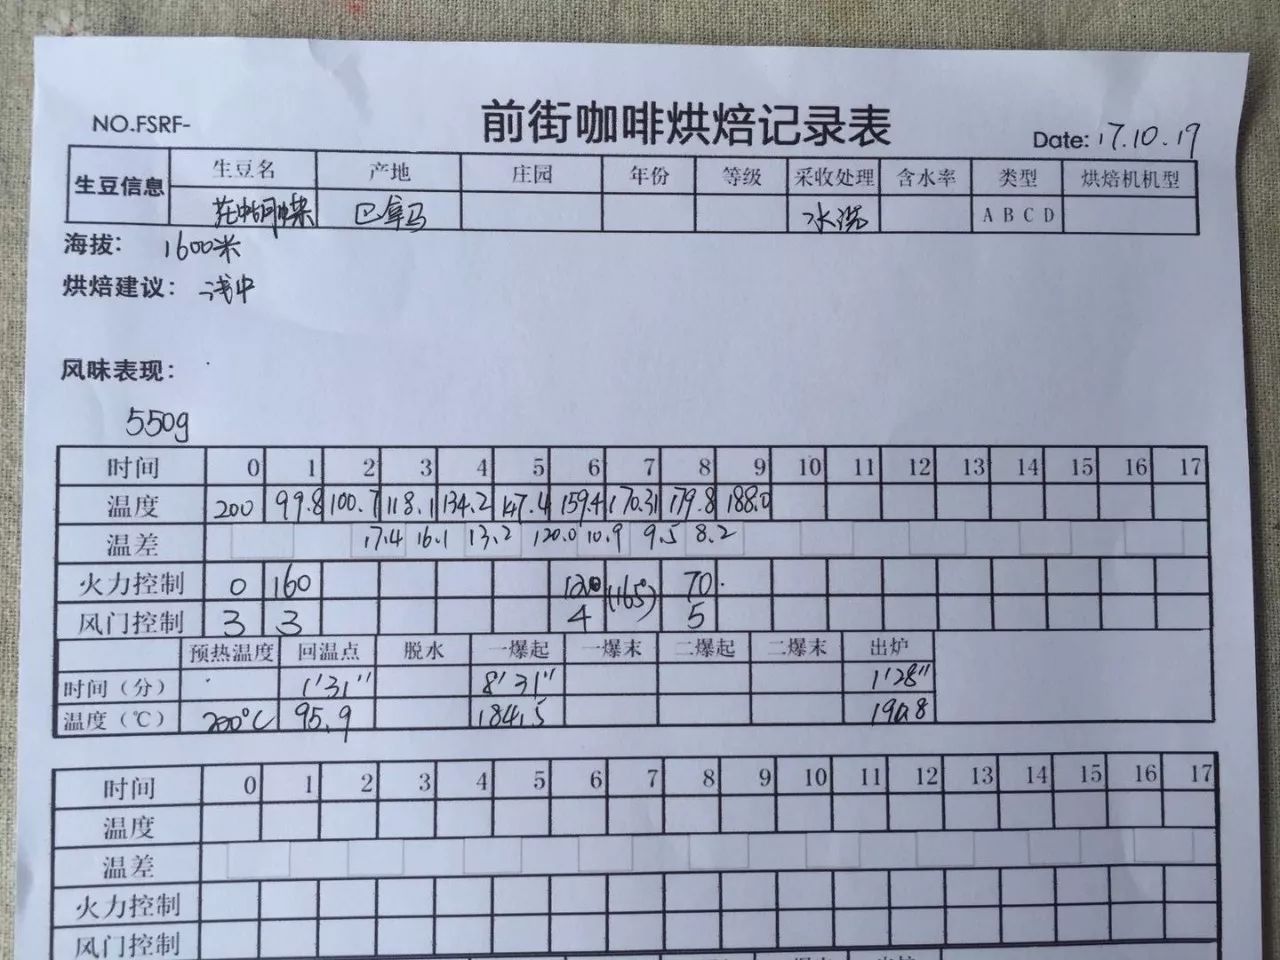 NO.FSRF- 前街咖啡烘焙记录表 Date: 17.10.19
生豆信息 生豆名 产地 庄园 年份 等级 采收处理 含水率 类型 烘焙机机型
花蝴蝶 巴拿马 水洗 A B C D
海拔： 1600米
烘焙建议： 浅中
风味表现：
550g
时间 0 1 2 3 4 5 6 7 8 9 10 11 12 13 14 15 16 17
温度 200 99.8 100.7 118.1 134.2 147.4 159.4 170.31 179.8 188.0
温差 17.4 16.1 13.2 120.0 10.9 9.5 8.2
火力控制 0 160 120 (165°) 70
风门控制 3 3 4 5
预热温度 回温点 脱水 一爆起 一爆末 二爆起 二爆末 出炉
时间（分） 1'31" 8'31" 1'28"
温度（℃） 200℃ 95.9 184.5 190.8
时间 0 1 2 3 4 5 6 7 8 9 10 11 12 13 14 15 16 17
温度
温差
火力控制
风门控制